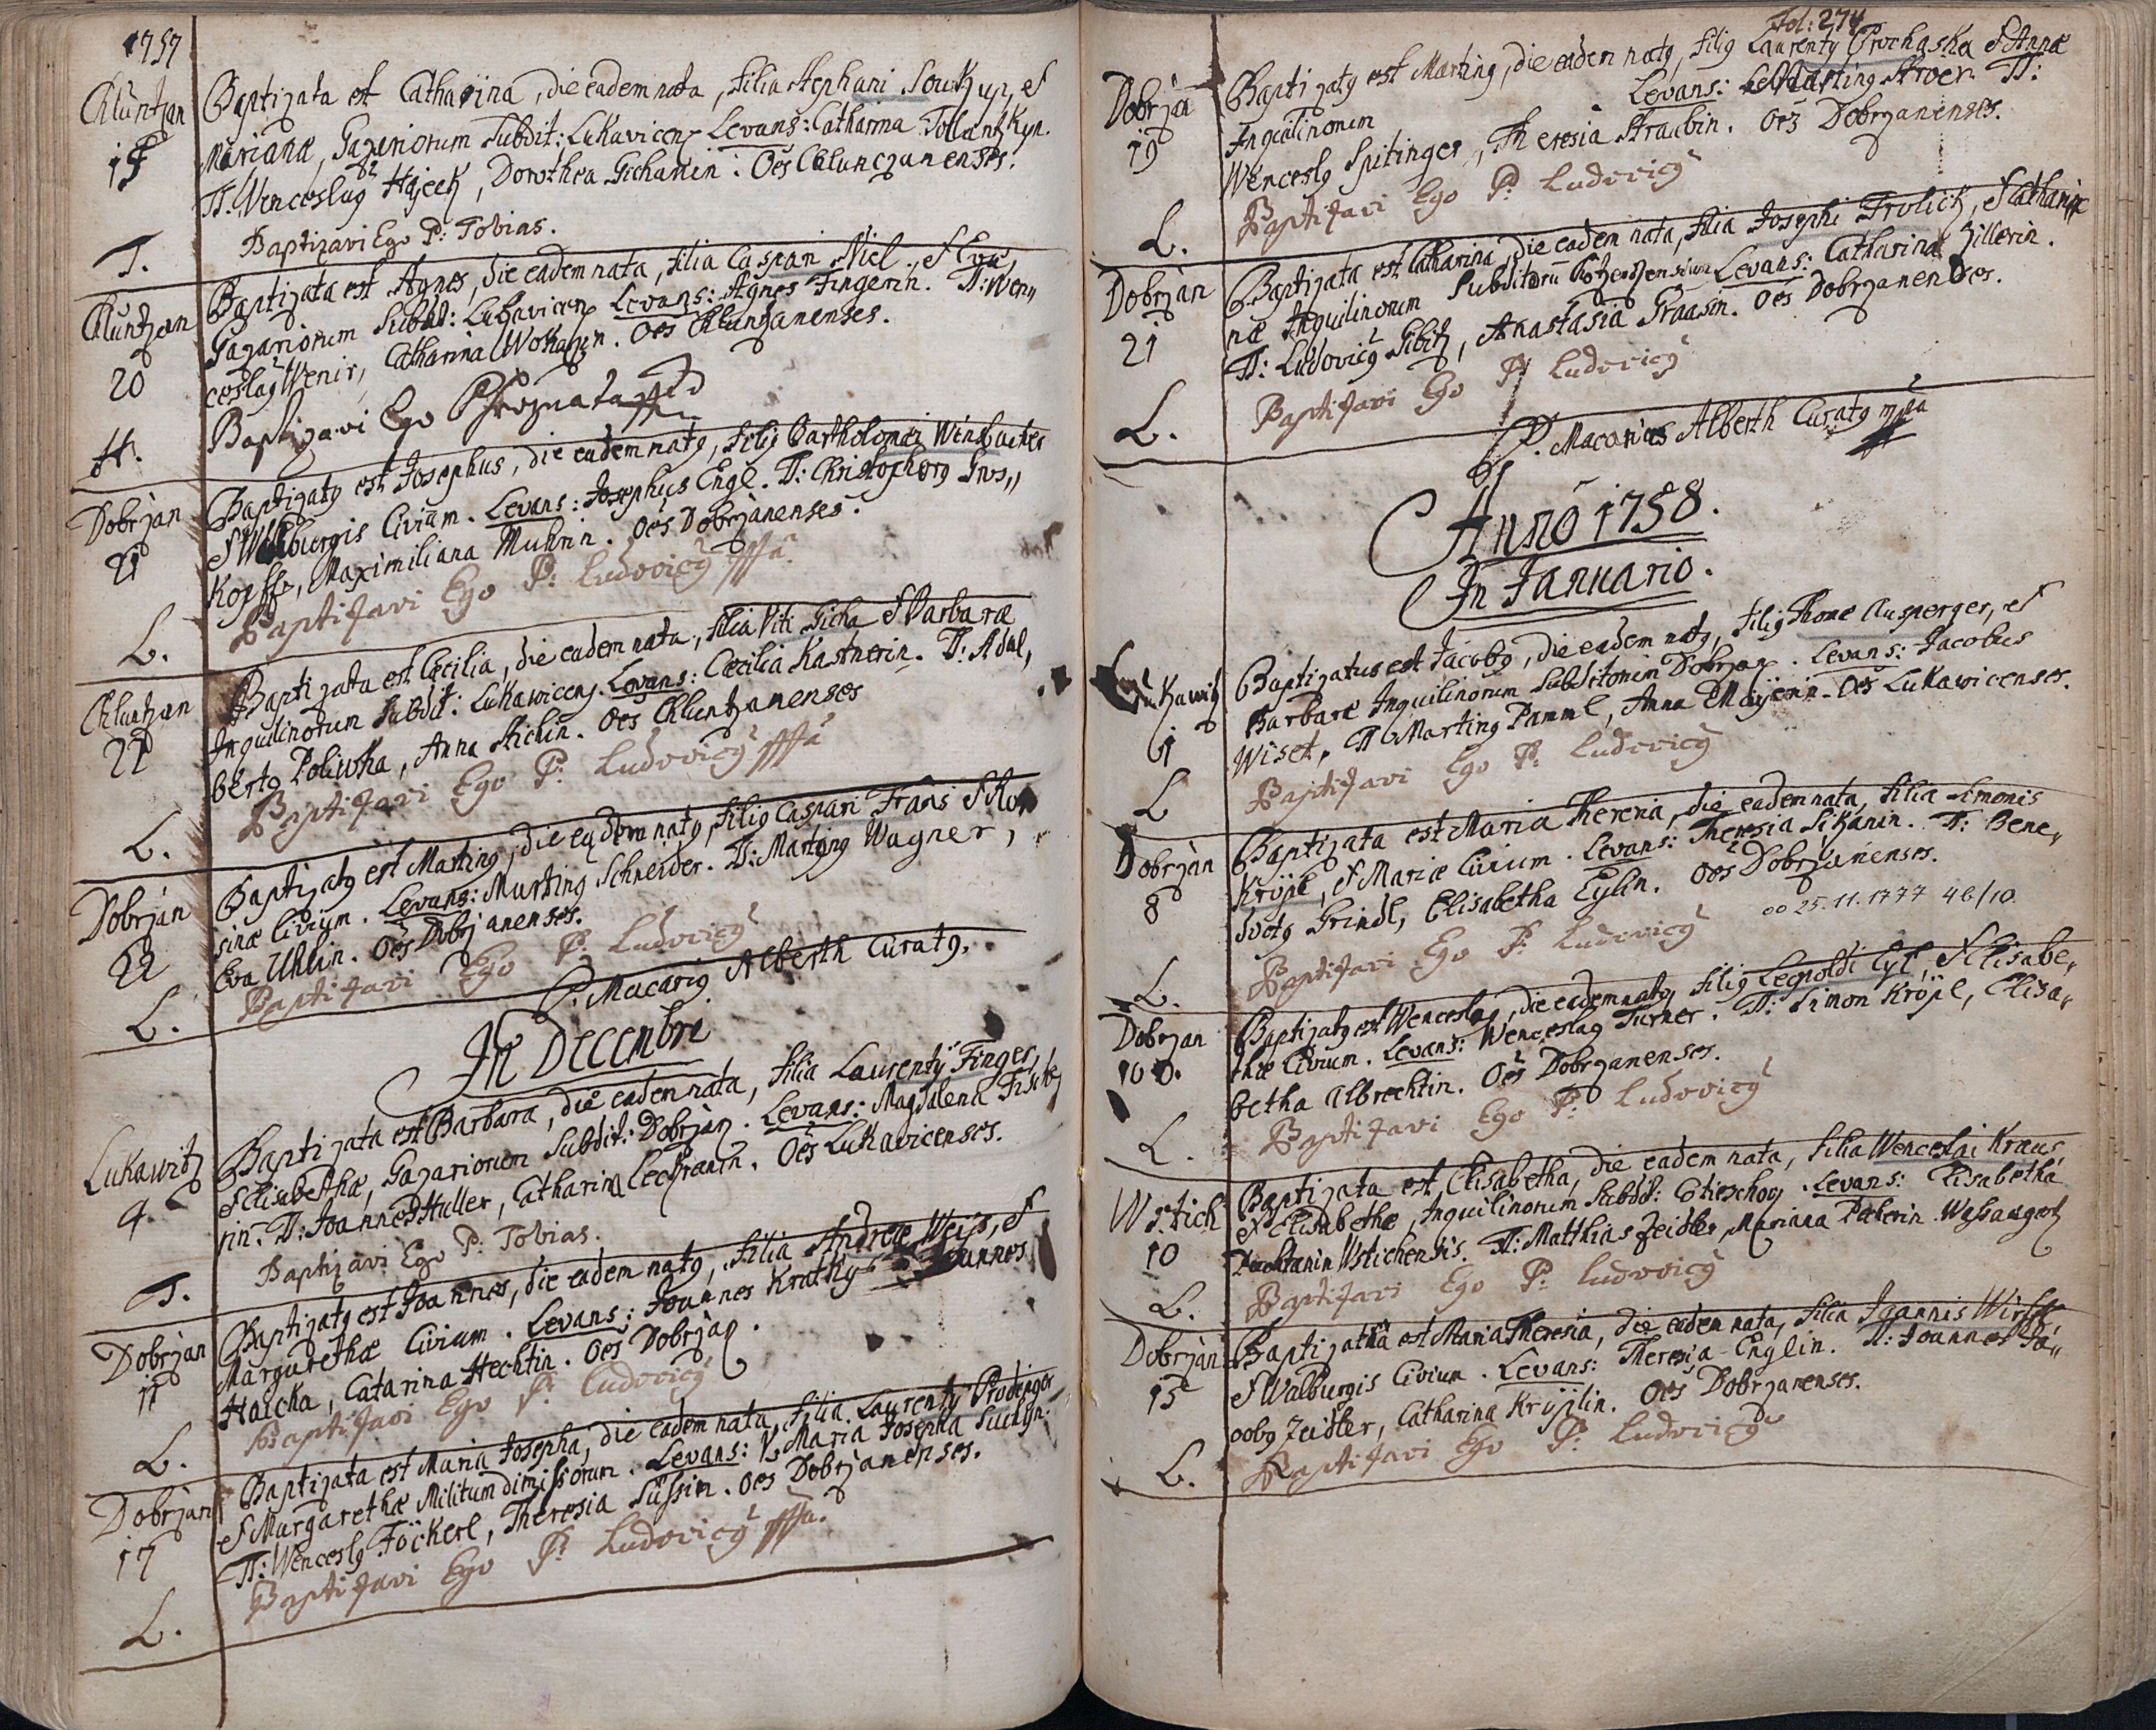 1757
Chluntzan
Baptizata est Catharina, die eadem nata, filia Stephani Soukup, et
Marianæ, Gazariorum Subdit: Lukavicens Levans: Catharina
T. Wenceslaus Hajeck, Dorothea Gichanin. Oēs Chlunczanenses.
Baptizavi Ego P: Tobias.
T.
Chluntzan
20
Baptizata est Agnes, die eadem nata, filia Caspari Niel, et Evæ,
Gazariorum Subdit: Lukavicens Levans: Agnes Fingerin. T: Wen„
ceslaus Wenir, Catharina. Oes Chluntzanenses.
Baptizavi Ego P
H.
Dobrzan
21
Baptizatq est Josephus, die eadem natq, filiq Bartholomæi Winsbacher
et Walburgis Civium. Levans: Josephus Engl. T: Christophorq Gros„
Kopff, Maximiliana Muhrin. Oēs Dobrzanenses.
Baptizavi Ego P: Ludovicq
L.
Chluntzan
22
Baptizata est Cæcilia, die eadem nata, filia Viti Gicha et Barbaræ
Inquilinorum Subdit: Lukawicens. Levans: Cæcilia Kastnerin. T: Adal,
bertq Poliwka, Anna Stichin. Oēs Chluntzanenses
Baptizavi Ego P: Ludovicq
L.
Dobrzan
22
Baptizatq est Martinq, die eadem natq, filiq Caspari Frans et Ro„
sinæ Civium. Levans: Martinq Schneider. T: Martinq Wagner,
Eva Uhlin. Oēs Dobrzanenses.
Baptizavi Ego P: Ludovicq
L.
P. Macariq Alberth Curatq.
In Decembri
Lukawitz
4.
Baptizata est Barbara, die eadem nata, filia Laurentij Finger,
et Elisabethæ, Gazariorum Subdit: Dobrzan. Levans: Magdalena Fische
rin. T: Joannes Huller, Catharina. Oēs Lukavicenses.
Baptizavi Ego P: Tobias.
T.
Dobrzan
11
Baptizatq est Joannes, die eadem natq, filia Andreæ Weiss, et
Margarethæ Civium. Levans: Joannes Kratky Joannes
Haicka, Catarina Hechtin. Oes Dobrzan.
Baptizavi Ego P: Ludovicq
L.
Dobrzan
17
Baptizata est Maria Josepha, die eadem nata, filia Laurentij
et Margarethæ Militum dimissorum. Levans: V. Maria Josepha
T: Wenceslq Föckerl, Theresia Süssin. Oes Dobrzanenses.
Baptizavi Ego P: Ludovicq
L.
Fol: 274
Dobrzan
19
Baptizatq est Martinq, die eadem natq, filiq Laurentij Prochaska et Annæ
Inquilinorum Levans: Martinq Stroer T:
Wenceslq Spitinger, Theresia Straubin. Oēs Dobrzanenses.
Baptizavi Ego P: Ludovicq
L.
Dobrzan
21
Baptizata est Catharina, die eadem nata, filia Josephi Frolich, et Cathari„
næ Inquilinorum Subditorū Levans: Catharina Zillerin.
T: Ludovicq Sibitz, Anastasia Graasin. Oes Dobrzanenses.
Baptizavi Ego P Ludovicq
L.
P. Macarius Alberth Curatq mpia
Anno 1758.
In Januario.
Lukawitz
1
Baptizatus est Jacobq, die eadem natq, filiq Thomæ Ausperger, et
Barbaræ Inquilinorum Subditorum Dobrzan. Levans: Jacobus
Wiset, T Martinq Pamml, Anna Mayerin. Oes Lukawicenses.
Baptizavi Ego P: Ludovicq
L
Dobrzan
8
Baptizata est Maria Theresia, die eadem nata, filia Simonis
Kröpl, et Mariæ Civium. Levans: Theresia Sikanin. T: Bene„
dictq Grindl, Elisabetha Eylin. Oēs Dobrzanenses.
oo 25.11.1777 46/10
Baptizavi Ego P: Ludovicq
L.
Dobrzan
10
Baptizatq est Wenceslaq, die eadem natq, filiq Leopoldi Eyl, et Elisabe„
thæ Civium. Levans: Wenceslaq Turner. T: Simon Kröpl, Elisa„
betha Albrechtin. Oēs Dobrzanenses.
Baptizavi Ego P: Ludovicq
L.
Wstich
10
Baptizata est Elisabetha, die eadem nata, filia Wenceslai Kraus,
et Elisabethæ, Inquilinorum Subdit: Levans: Elisabetha
Wstichensis. T: Matthias Zeidler, Mariana
Baptizavi Ego P: Ludovicq
L.
Dobrzan
15
Baptizata est Maria Theresia, die eadem nata, filia Joannis
et Walburgis Civium. Levans: Theresia Englin. T: Joannes Ja„
cobq Zeidler, Catharina Kröplin. Oēs Dobrzanenses.
Baptizavi Ego P: Ludovicq
L.